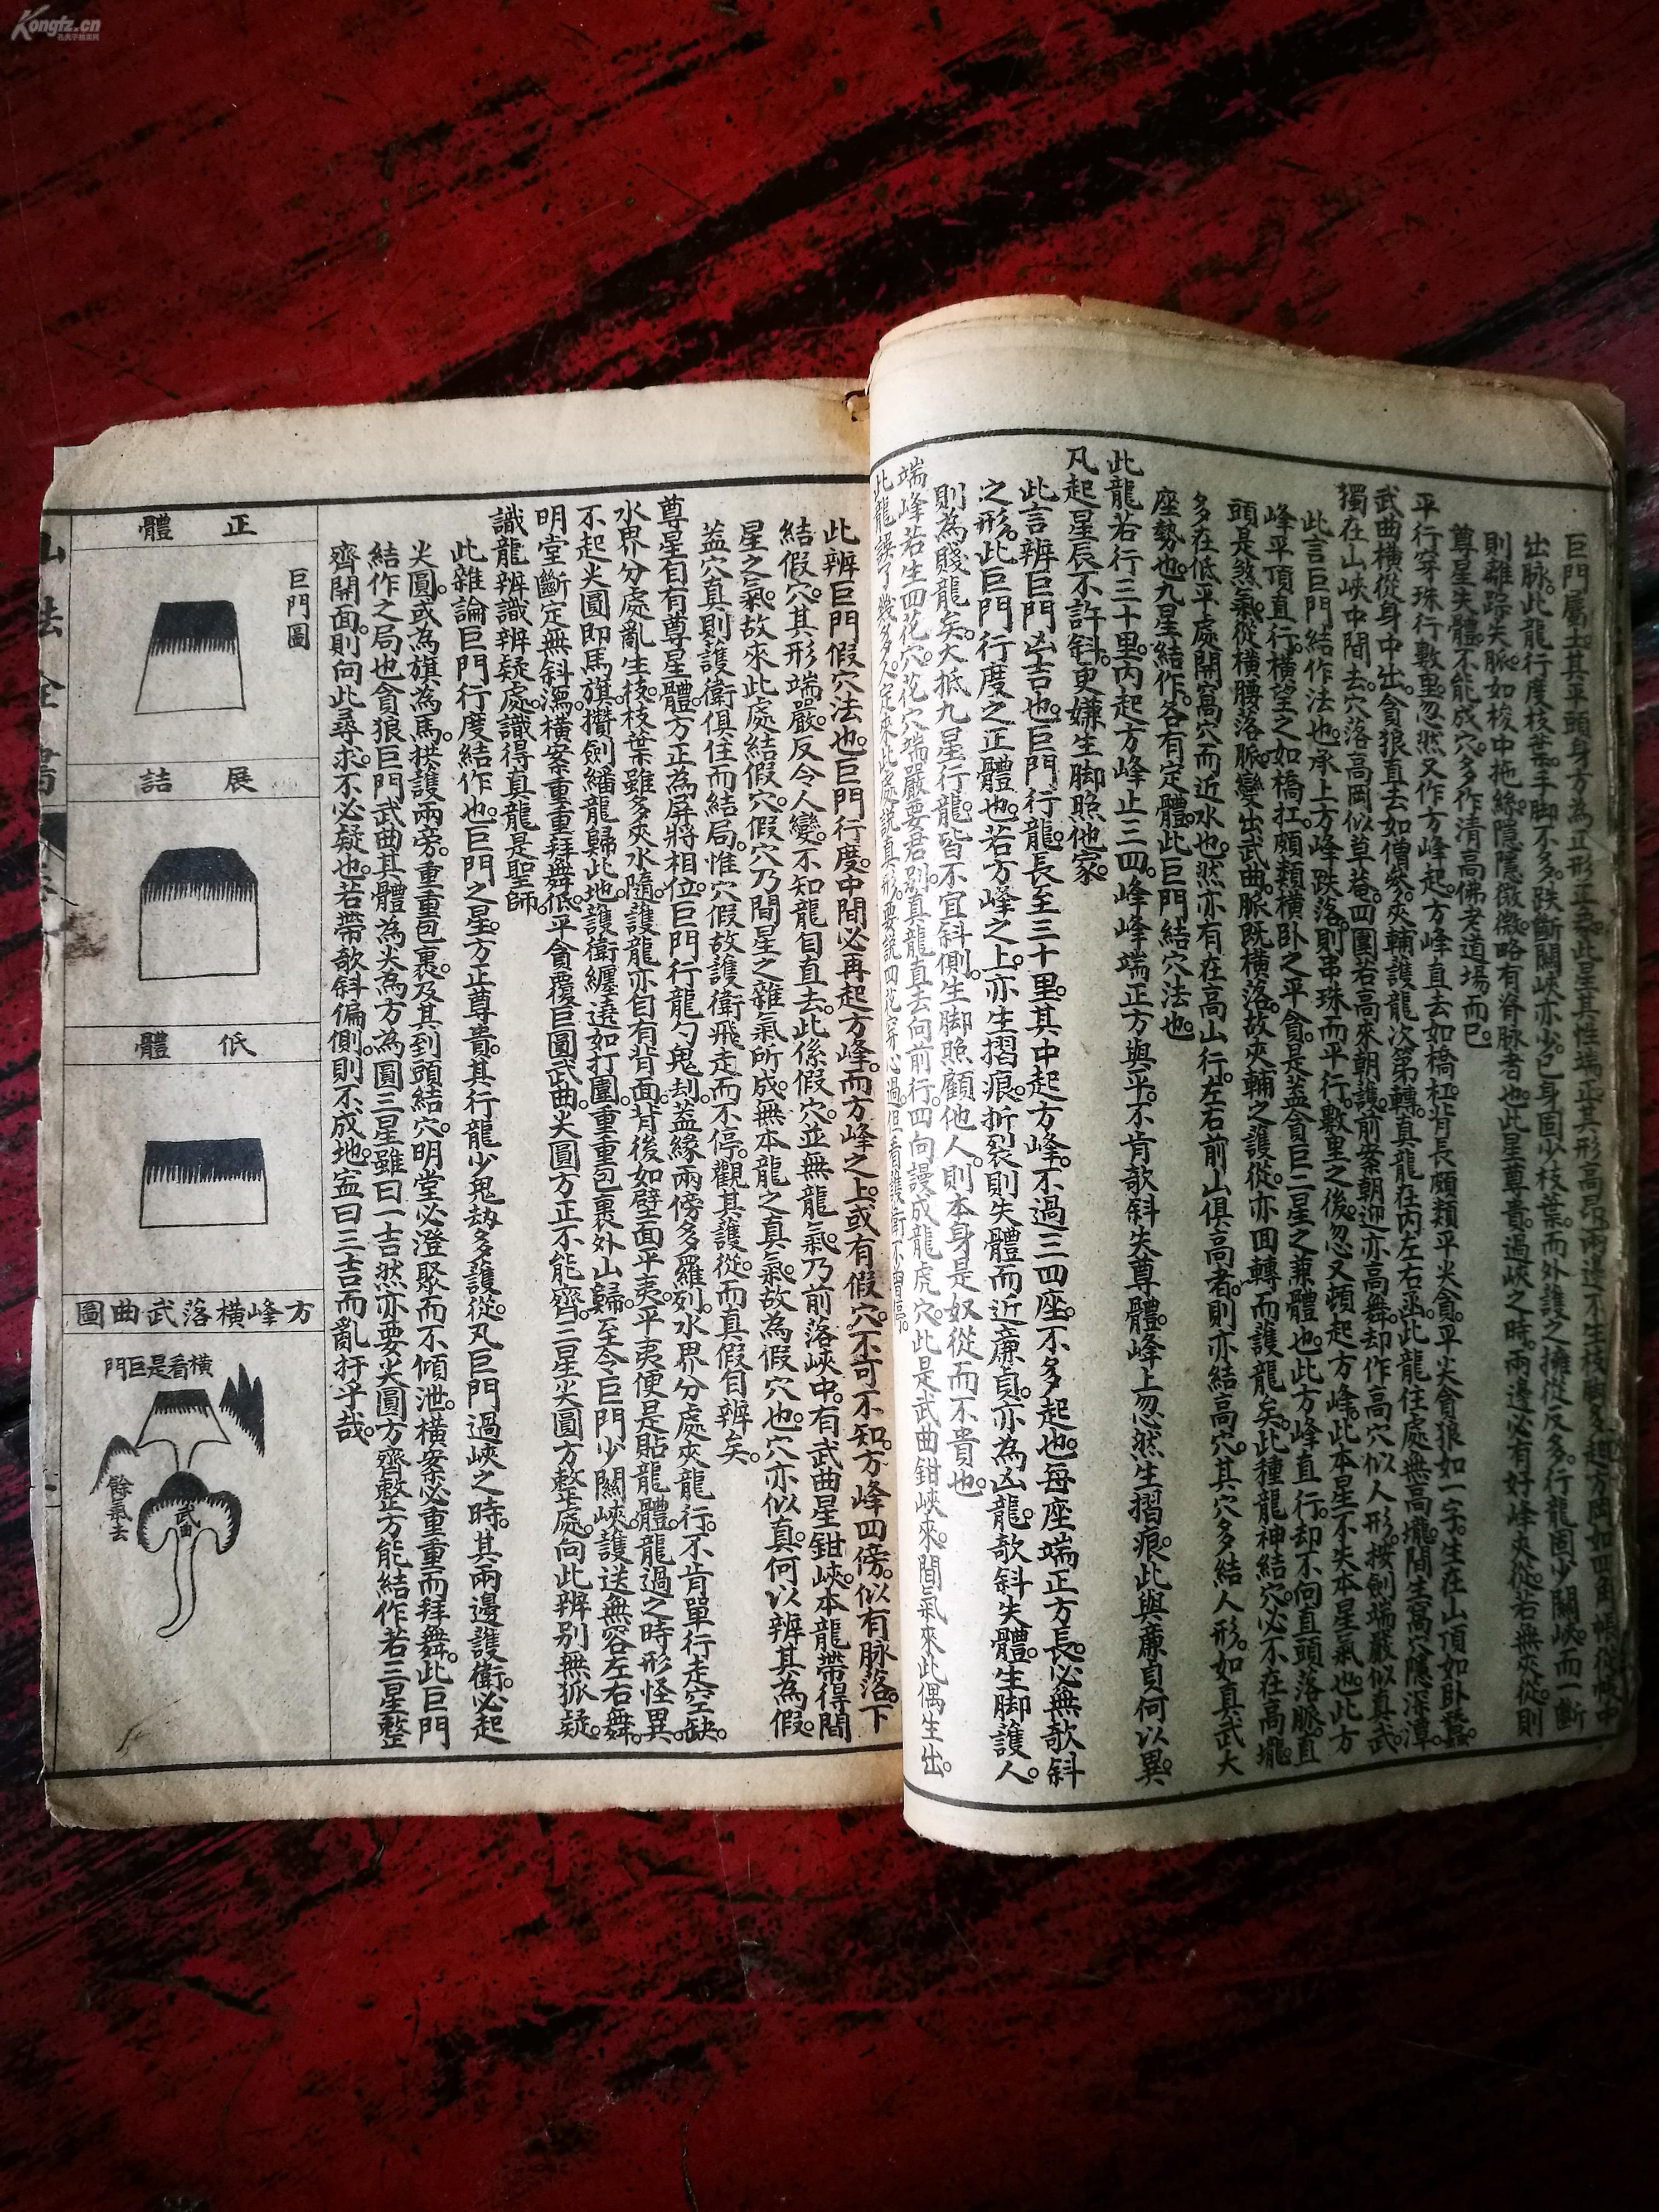 Kongfz.cn
孔夫子旧书网
出脉此龍行度枝葉手脚不多跌斷關峽亦少已身固少枝葉而外護之擁從反多行龍固少關峽而一斷
則離踪失脈如梭中拖絲隱隱微微略有脊脉者也此星尊貴過峽之時兩邊必有好峰夾從若無夾從則
尊星失體不能成穴多作清高佛老道場而已
平行穿珠行數里忽然又作方峰起方峰直去如橋杠背長頗類平尖貪平尖貪狼如一字生在山頂如卧蠶
武曲橫從身中出貪狼直去如僧參夾輔護龍次第轉真龍在內左右函此龍住處無高壠間生窩穴隱深潭
獨在山峽中間去穴落高岡似草菴四圍若高來朝護前案朝迎亦高舞却作高穴似人形按劍端嚴似真武
此言巨門結作法也承上方峰跌落則串珠而平行數里之後忽又頓起方峰此本星不失本星氣也此方
峰平頂直行橫望之如橋杠頗類橫卧之平貪是蓋貪巨二星之兼體也此方峰直行却不向直頭落脈直
頭是煞氣從橫腰落脈變出武曲脈既橫落故夾輔之護從亦回轉而護龍矣此種龍神結穴必不在高壠
多在低平處開窩穴而近水也然亦有在高山行左右前山俱高者則亦結高穴其穴多結人形如真武大
座勢也九星結作各有定體此巨門結穴法也
此龍若行三十里內起方峰止三四峰峰端正方與平不肯欹斜失尊體峰上忽然生摺痕此與廉貞何以異
凡起星辰不許斜更嫌生脚照他家
此言辨巨門凶吉也巨門行龍長至三十里其中起方峰不過三四座不多起也每座端正方長必無欹斜
之形此巨門行度之正體也若方峰之上亦生摺痕折裂則失體而近廉貞亦為凶龍欹斜失體生脚護人
則為賤龍矣大抵九星行龍皆不宜斜側生脚照顧他人則本身是奴從而不貴也
端峰若生四花穴花穴端嚴要君別真龍直去向前行四向謾成龍虎穴此是武曲鉗峽來間氣來此偶生出
此龍誤了幾多人定來此處說真形要說四花穿心過但看護衛不曾停
此辨巨門假穴法也巨門行度中間必再起方峰而方峰之上或有假穴不可不知方峰四傍似有脉落下
結假穴其形端嚴反令人變不知龍自直去此係假穴並無龍氣乃前落峽中有武曲星鉗峽本龍帶得間
星之氣故來此處結假穴假穴乃間星之雜氣所成無本龍之真氣故為假穴也穴亦似真何以辨其為假
蓋穴真則護衛俱住而結局惟穴假故護衛飛走而不停觀其護從而真假自辨矣
尊星自有尊星體方正為屏將相位巨門行龍勺鬼刦蓋緣兩傍多羅列水界分處夾龍行不肯單行走空缺
水界分處亂生枝枝葉雖多夾水隨護龍亦自有背面背後如壁面平夷平夷便是貼龍體龍過之時形怪異
不起尖圓即馬旗攢劍繙龍歸此地護衛纏遶如打圍重重包裹外山歸至令巨門少關峽護送無容左右舞
明堂斷定無斜瀉橫案重重拜舞低平貪覆巨圓武曲尖圓方正不能齊三星尖圓方整處向此辨別無狐疑
識龍辨識辨疑處識得真龍是聖師
此雜論巨門行度結作也巨門之星方正尊貴其行龍少鬼劫多護從凡巨門過峽之時其兩邊護衛必起
尖圓或為旗為馬拱護兩旁重重包裹及其到頭結穴明堂必澄聚而不傾泄橫案必重重而拜舞此巨門
結作之局也貪狼巨門武曲其體為尖為方為圓三星雖曰一吉然亦要尖圓方齊整方能結作若三星整
齊開面則向此尋求不必疑也若帶欹斜偏側則不成地盍曰三吉而亂扦乎哉
正體
巨門圖
展詰
低體
方峰橫落武曲圖
橫看是巨門
武曲
餘氣去
山法全書